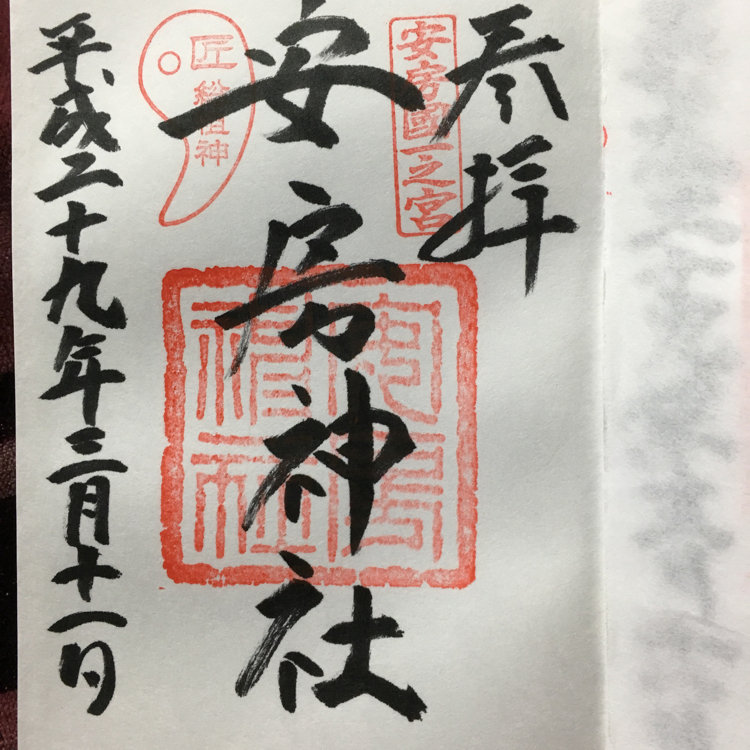 奉拝
安房國一之宮
安房神社
安房神社
匠総祖神
平成二十九年三月十一日